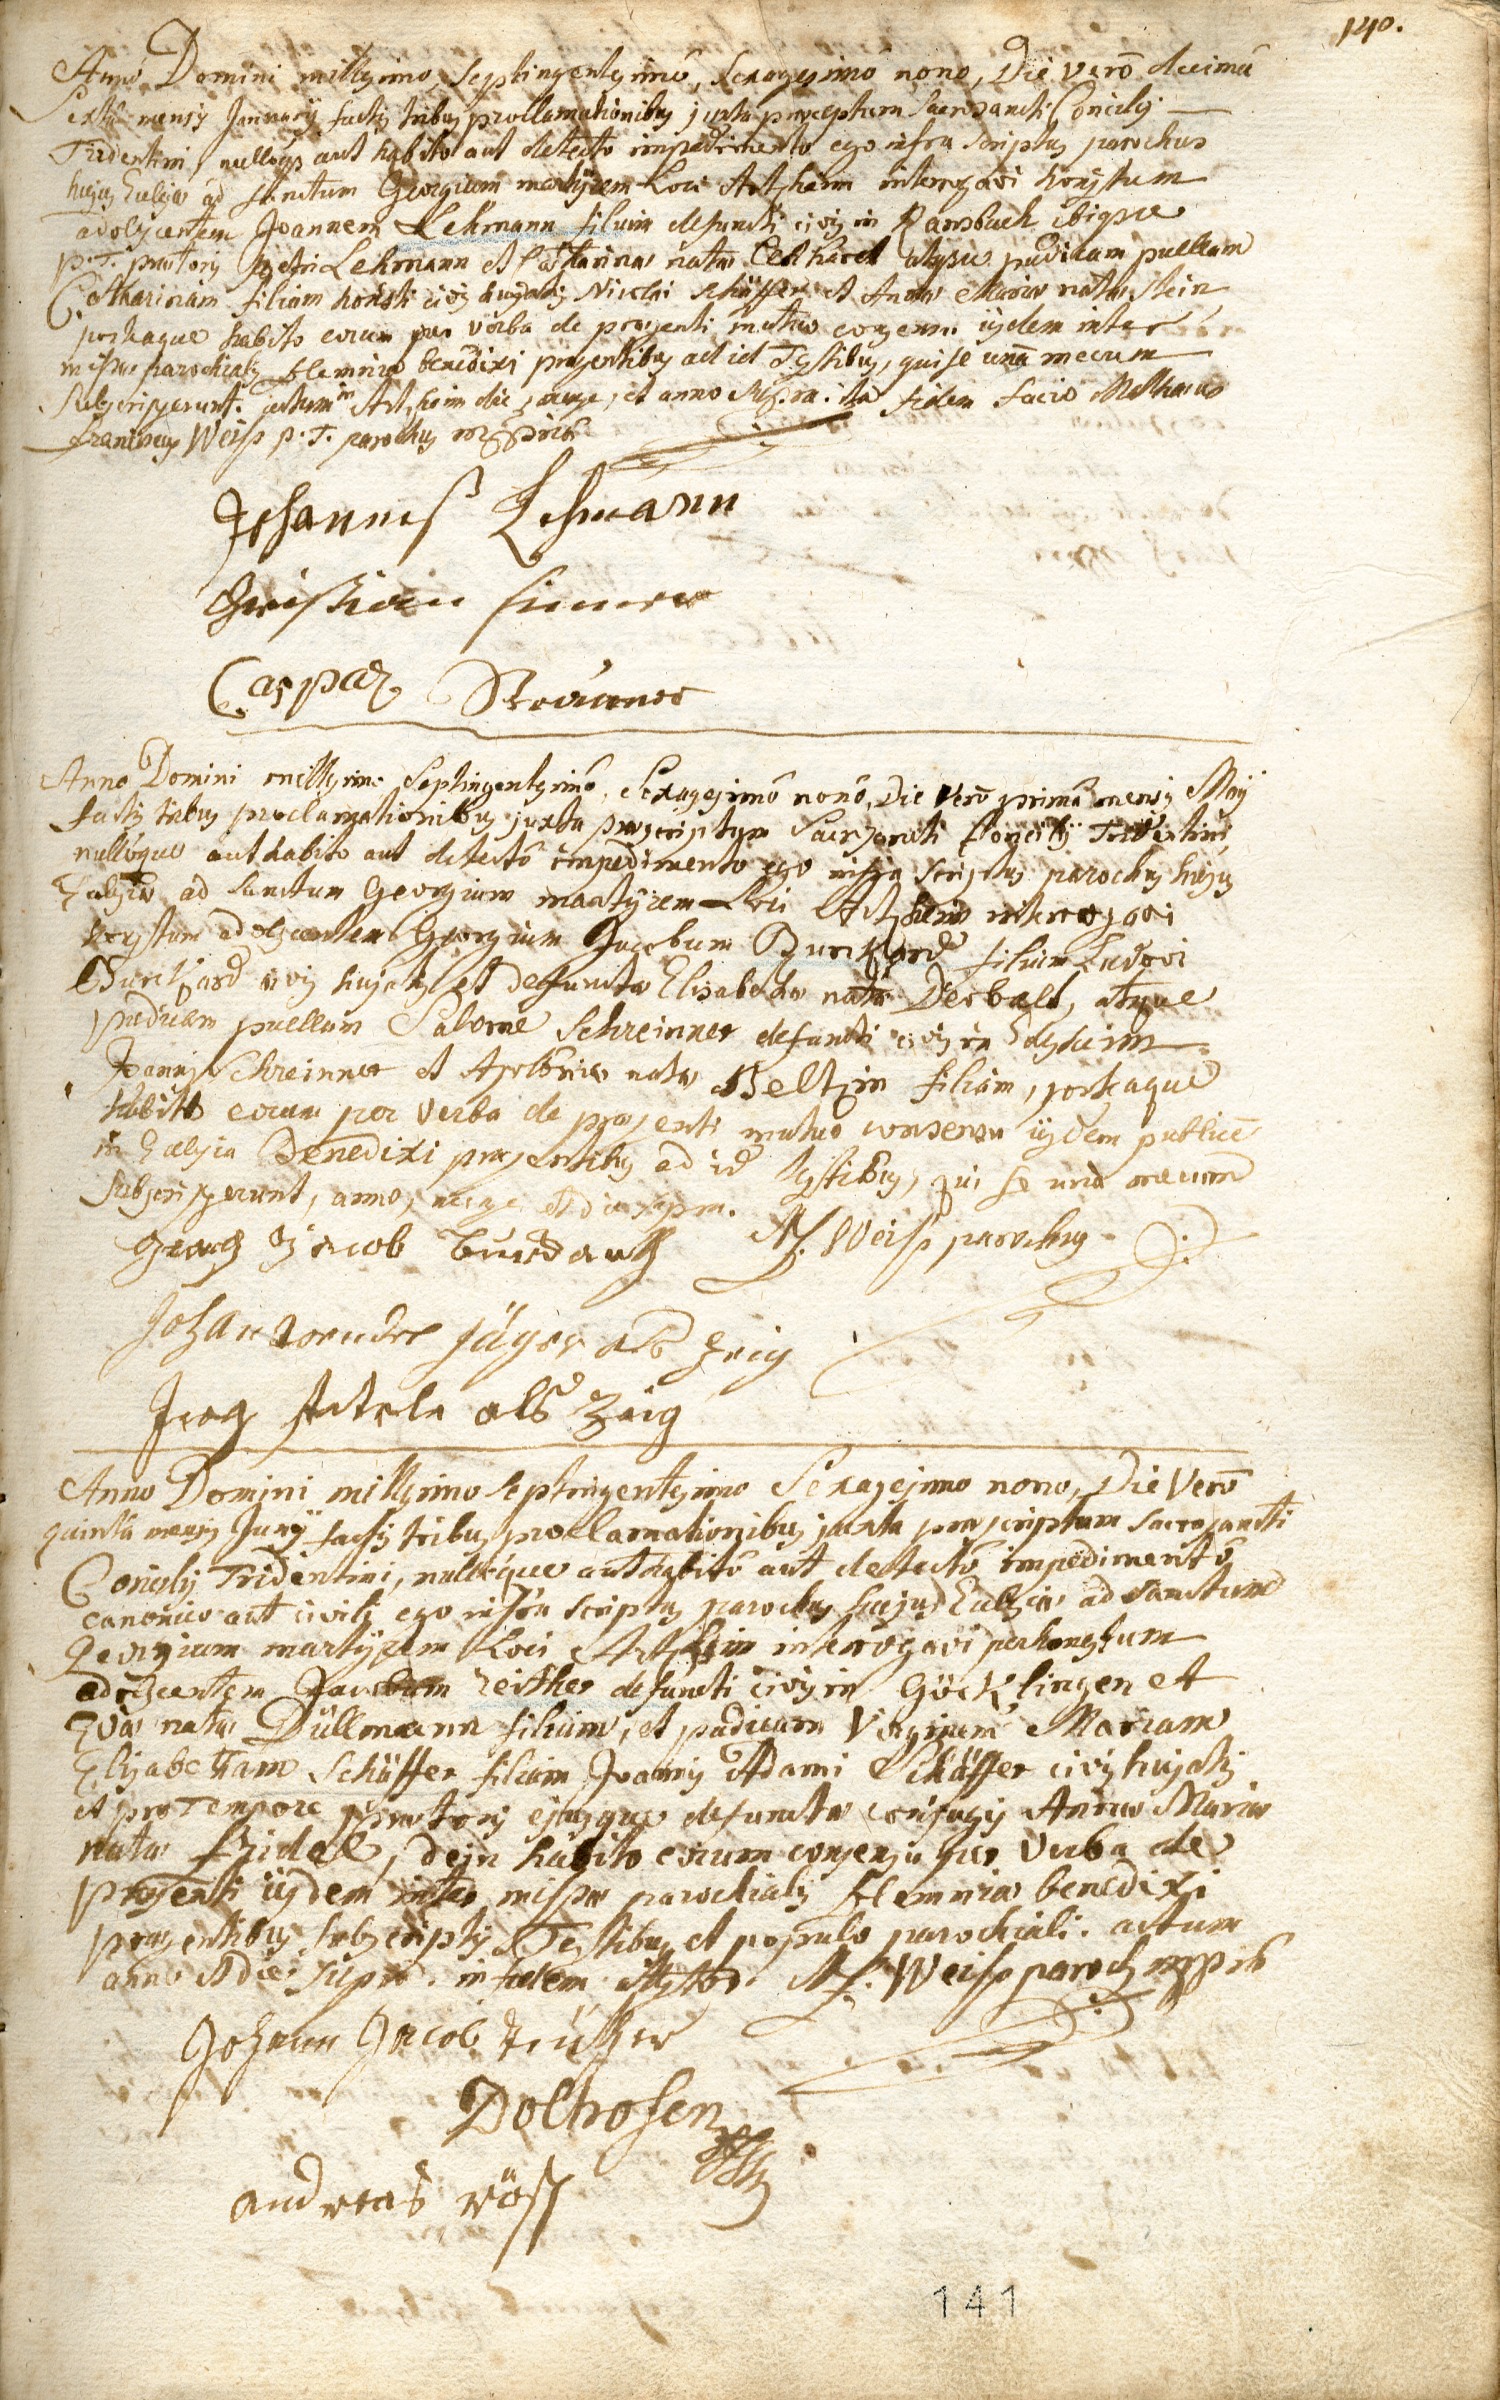 140.
Anno Domini millesimo septingentesimo, sexagesimo nono, Die vero decima
sexta mensis January factis tribus proclamationibus juxta praeceptum sacrosancti Concily
Tridentini, nulloque aut habito aut detecto impedimento ego infra scriptus parochus
hujus Eccles: ad sanctum Georgium martyrem Loci Artzheim interrogavi honestum
adolescentem Joannem Lehmann filium defuncti civis in Ransbach ibique
p. T. praetoris petri Lehmann et Catharinae natae Eckhard atque pudicam puellam
Catharinam filiam honesti civis hujatis Nicolai Schäffer et Annae Mariae natae Stein
posteaque habito eorum per verba de praesenti mutuo consensu ijsdem inter
missae parochialis solemnia benedixi praesentibus ad id Testibus, qui se una mecum
subscripserunt. actum in Artzheim die, mense, et anno supra. ita fidem facio Mathaeus
franciscus Weiss p. T. parochus mppria
Johannes Lehmann
Christian
Caspar
Anno Domini millesimo septingentesimo, sexagesimo nono, Die vero prima mensis May
factis tribus proclamationibus juxta praescriptum sacrosancti Concily Tridentini,
nulloque aut habito aut detecto impedimento ego infra scriptus parochus hujus
Eccles: ad sanctum Georgium martyrem Loci Artzheim interrogavi
honestum adolescentem Georgium Jacobum Burckhard filium Ludovi
Burckhard civis hujatis et defunctae Elisabethae natae Derbalt, atque
pudicam puellam Salome Schreinner defuncti civis in
Joannis Schreinner et Apoloniae natae Beltzin filiam, posteaque
habito eorum per verba de praesenti mutuo consensu ijsdem publice
in Ecclesia Benedixi praesentibus ad id testibus, qui se una mecum
subscripserunt, anno, mense et die supra. M. f. Weiss parochus
Georg Jacob Burckardt
Johan wendel jäger als Zeig
Jerg als Zeig
Anno Domini millesimo septingentesimo sexagesimo nono, Die Vero
quinta mensis Juny factis tribus proclamationibus juxta praescriptum sacrosancti
Concily Tridentini, nulloque aut habito aut detecto impedimento
canonico aut civili ego infra scriptus parochus hujus Ecclesiae ad sanctum
Georgium martyrem Loci Artzheim interrogavi perhonestum
adolescentem Jacobum Zeither defuncti civis in Göcklingen et
Evae natae Düllmann filium, et pudicam Virginem Mariam
Elisabetham Schäffer filiam Joannis Adami Schäffer civis hujatis
et pro Tempore praetoris ejusque defunctae conjugis Annae Mariae
natae, dein habito eorum consensu per Verba de
praesenti ijsdem inter missae parochialis solemnia benedixi
praesentibus subscriptis Testibus et populo parochiali. actum
anno et die supra. in fidem testor. M. f. Weiss parochus mppria
Johann Jacob
Dolhofen
andreas röss
141